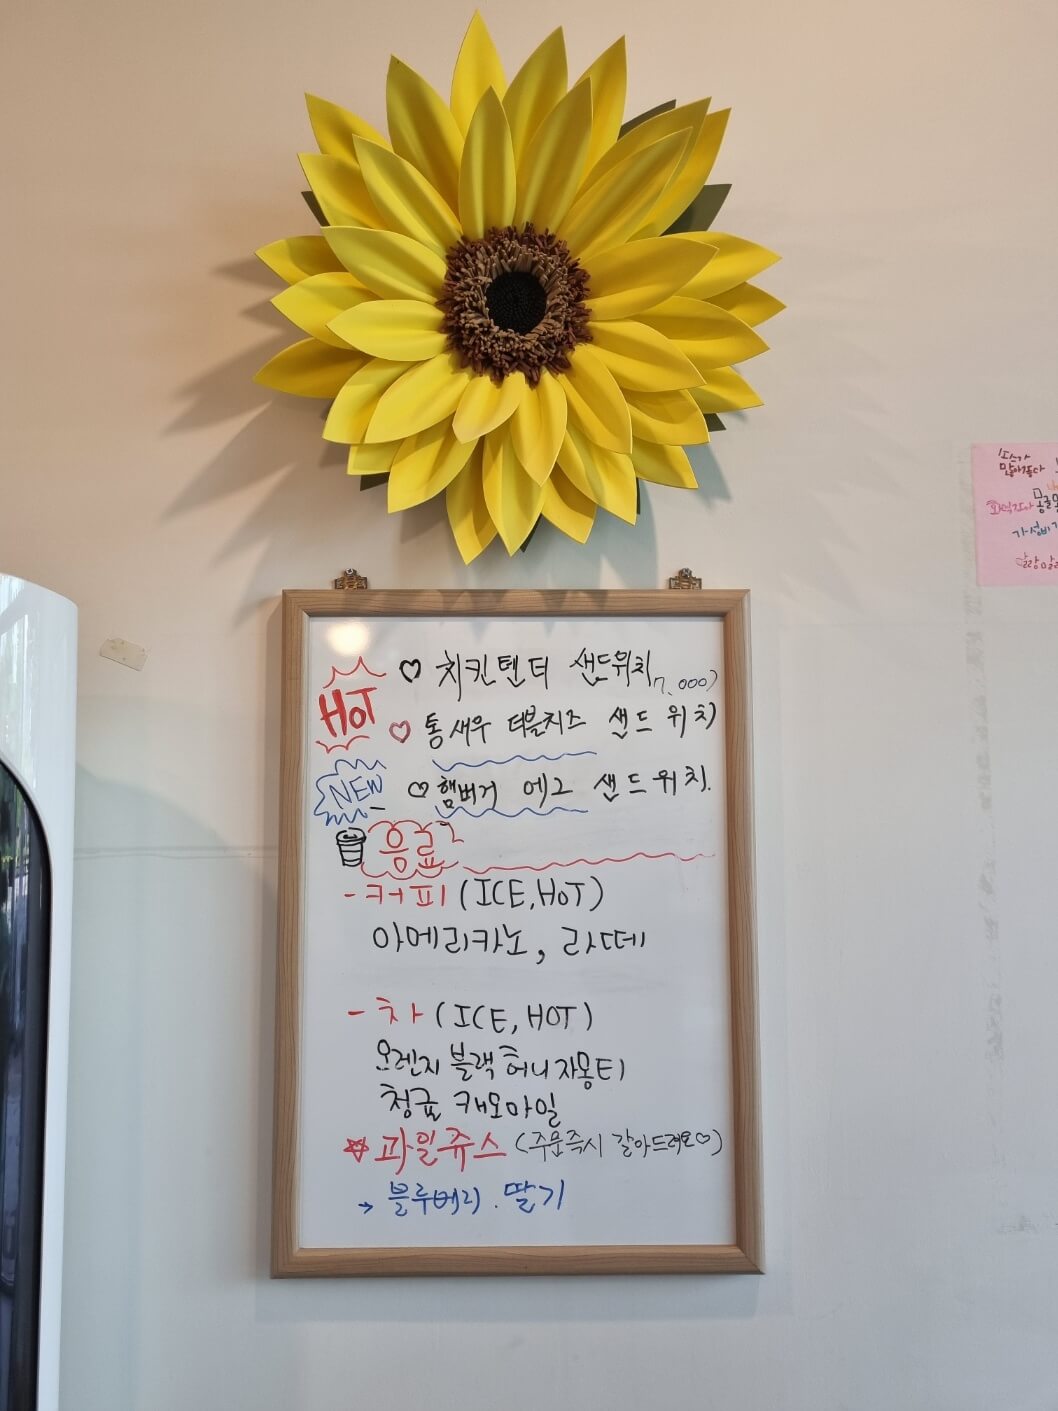 HOT
♡ 치킨텐더 샌드위치 7,000)
♡ 통새우 더블치즈 샌드위치
NEW
♡ 햄버거 에그 샌드위치.
음료
- 커피 (ICE, HOT)
아메리카노, 라떼
- 차 (ICE, HOT)
오렌지 블랙 허니자몽티
청귤 캐모마일
☆ 과일쥬스 (주문즉시 갈아드려요♡)
→ 블루베리. 딸기
소스가
많아좋다
가성비